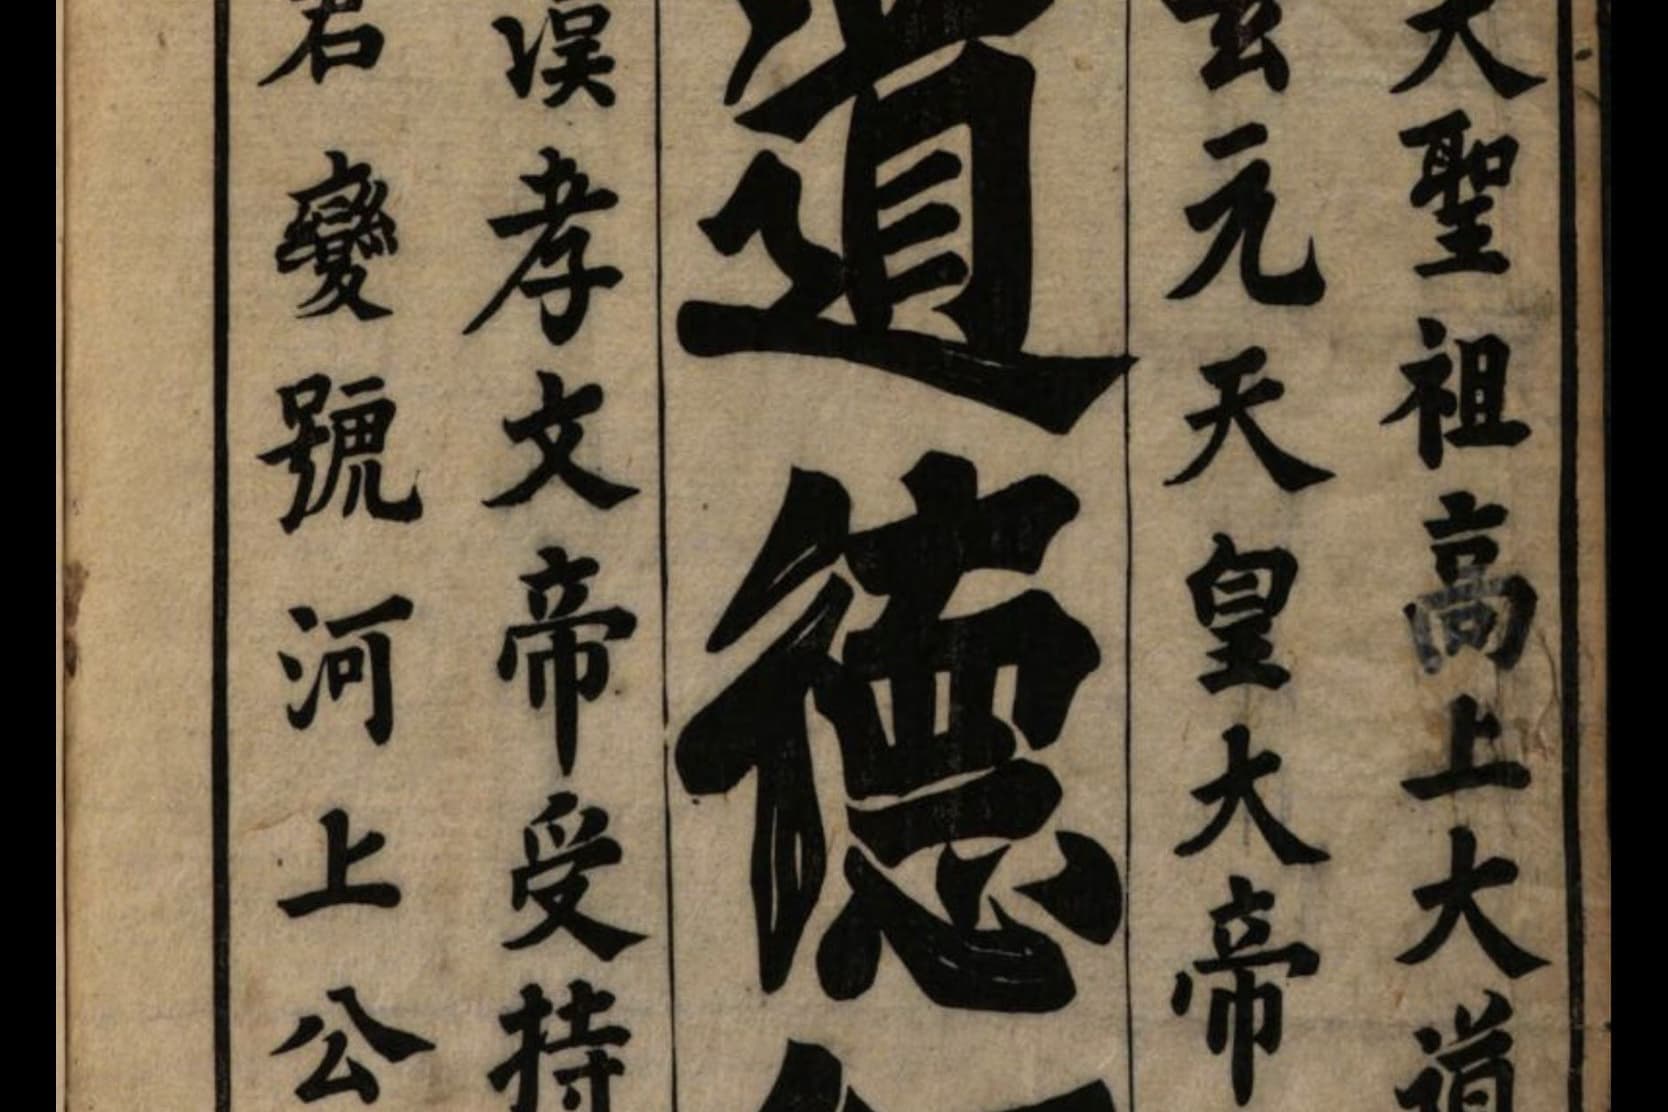 大聖祖高上大道
玄元天皇大帝
道德
漢孝文帝受持
君變號河上公